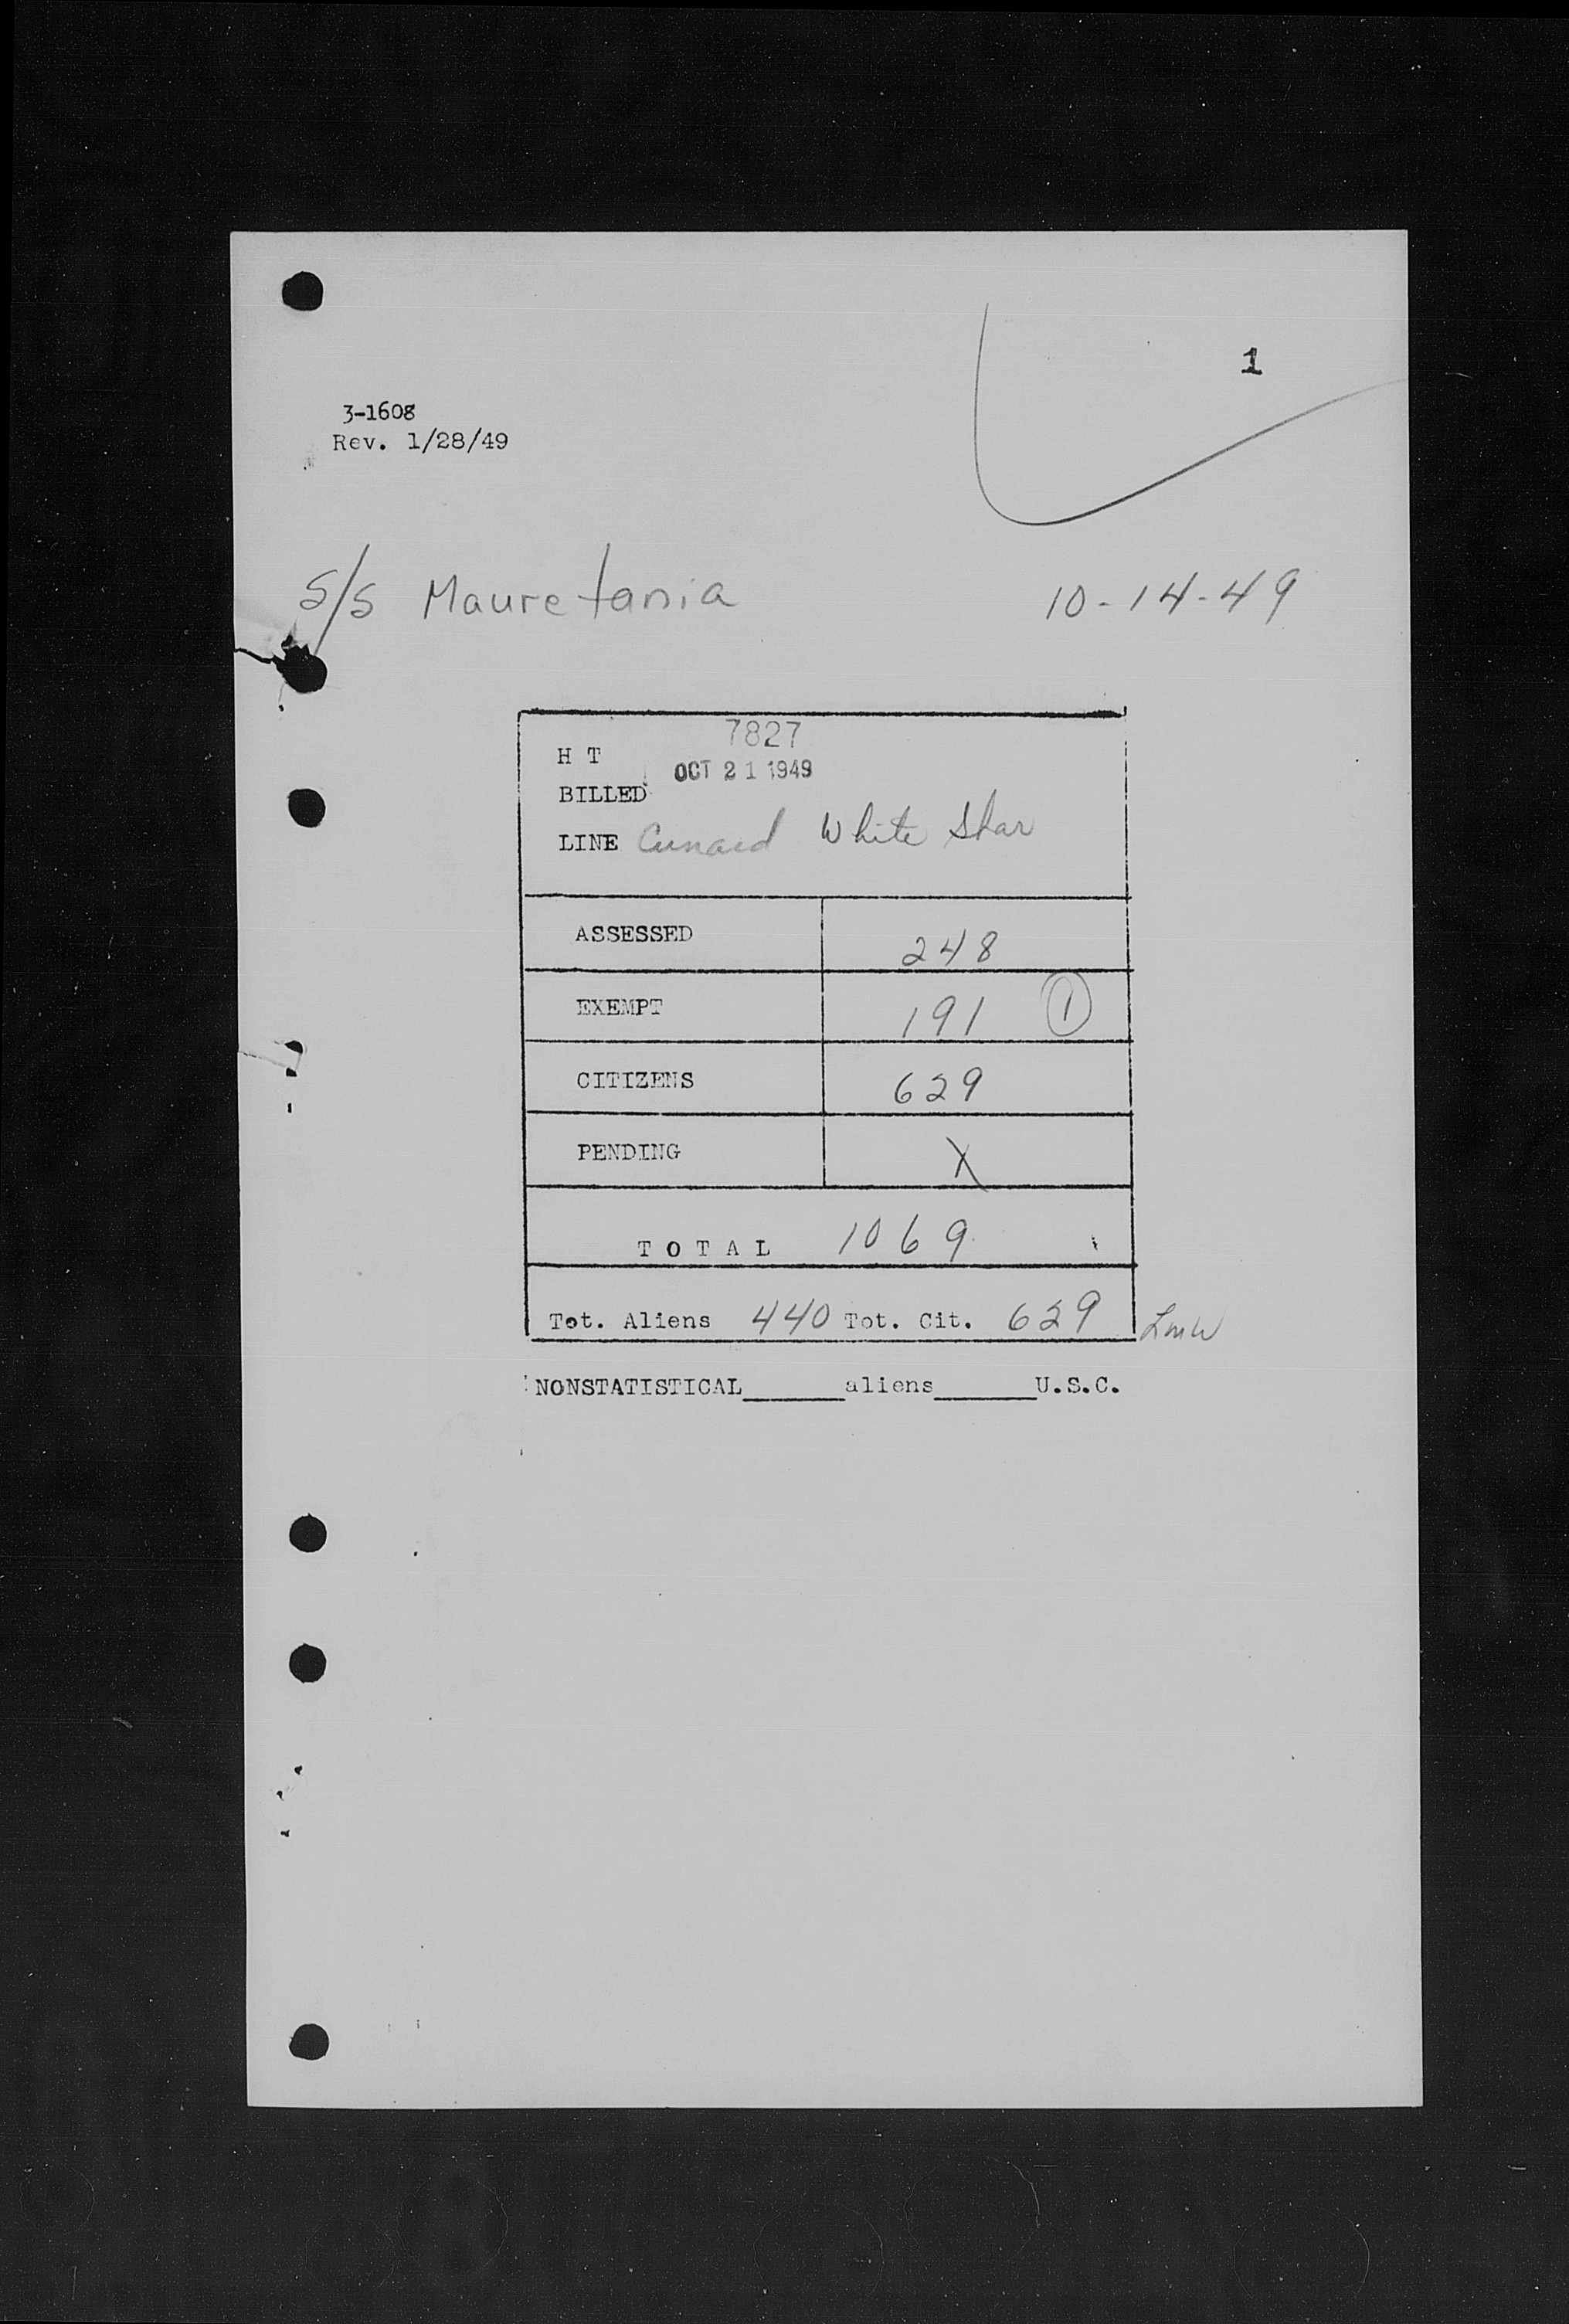 1
3-1608
Rev. 1/28/49
S/S Mauretania 10-14-49
7827
H T
OCT 21 1949
BILLED
LINE Cunard White Star
ASSESSED 248
EXEMPT 191 1
CITIZENS 629
PENDING X
TOTAL 1069
Tot. Aliens 440 Tot. Cit. 629 LMW
NONSTATISTICAL______aliens______U.S.C.